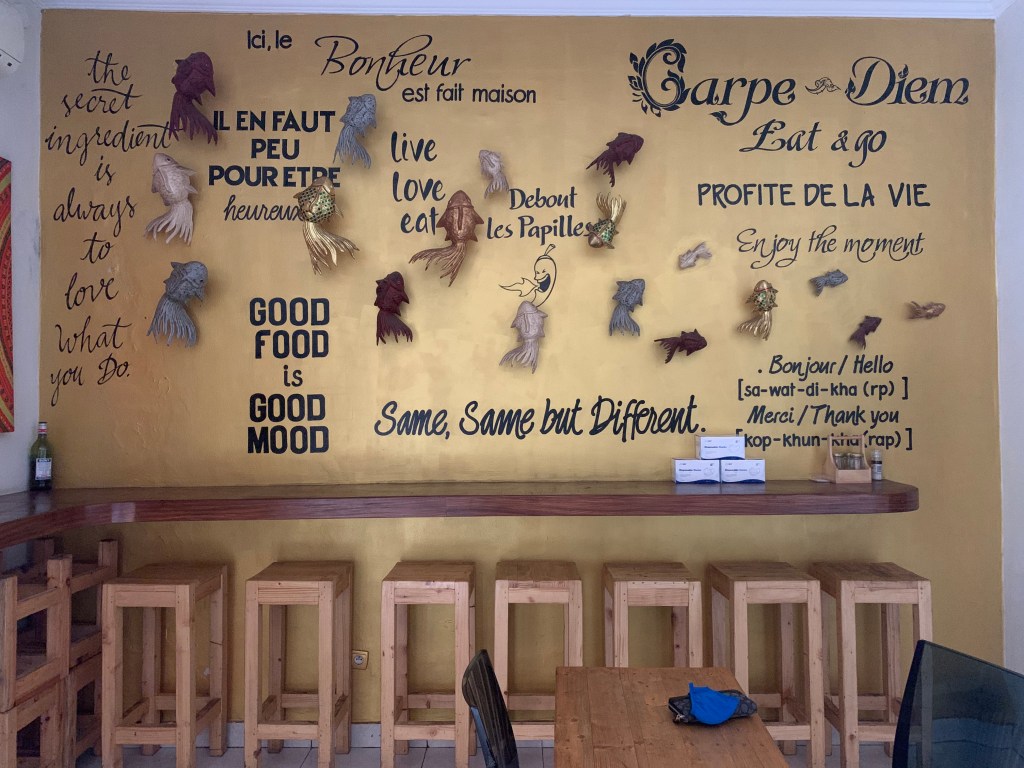 the
secret
ingredient
is
always
to
love
What
you Do.
Ici, le
Bonheur
est fait maison
IL EN FAUT
PEU
POUR ETRE
heureux
live
love
eat
Debout
les Papilles
GOOD
FOOD
is
GOOD
MOOD
Same, Same but Different.
Carpe Diem
Eat & go
PROFITE DE LA VIE
Enjoy the moment
. Bonjour / Hello
[sa-wat-di-kha (rp) ]
Merci / Thank you
[kop-khun-kha (rap) ]